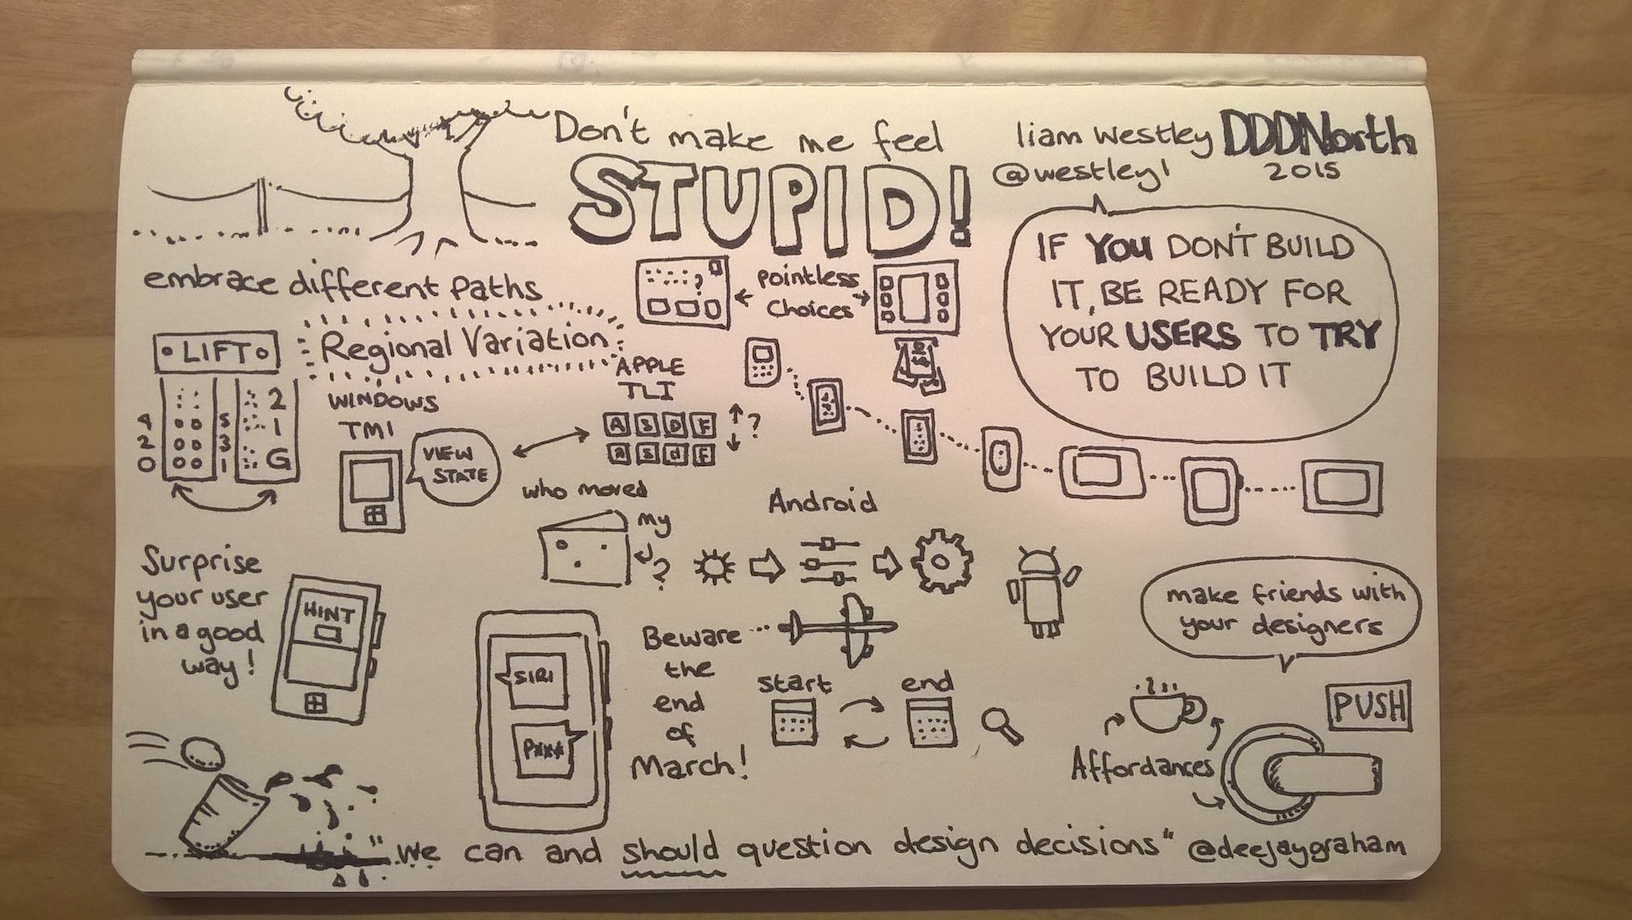 Don't make me feel
STUPID!
liam westley DDDNorth
@westley1 2015
IF YOU DON'T BUILD
IT, BE READY FOR
YOUR USERS TO TRY
TO BUILD IT
embrace different Paths
pointless
Choices
Regional Variation
LIFT
4
2
0
5
3
1
2
1
G
WINDOWS
TMI
VIEW
STATE
APPLE
TLI
A S D F
a s d f
?
who moved
my
?
Android
Surprise
your user
in a good
way!
HINT
SIRI
P***
Beware
the
end
of
March!
start end
make friends with
your designers
PUSH
Affordances
"we can and should question design decisions" @deejaygraham